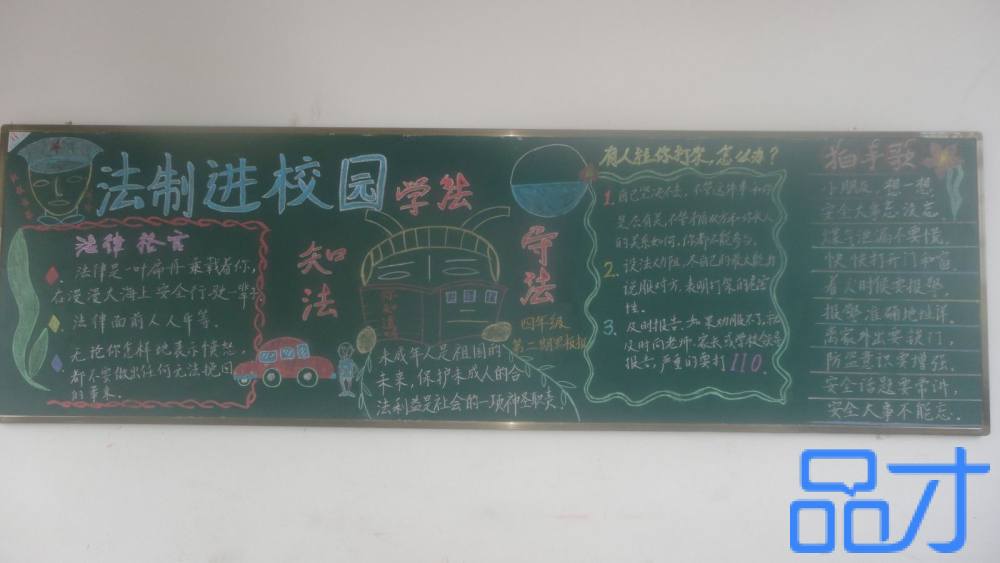 法制进校园
学法
知法
守法
法律格言
法律是一叶扁舟乘载着你,
在漫漫大海上安全行驶一辈子
法律面前人人平等.
无论你怎样地表示愤怒
都不要做出任何无法挽回
的事来.
四年级
第二期黑板报
未成年人是祖国的
未来,保护未成人的合
法利益是社会的一项神圣职责!
有人拉你打架,怎么办?
1. 自己坚决不去,不管这件事和你
是否有关,不管矛盾双方和你本人
的关系如何,你都不能参与.
2. 设法劝阻,尽自己的最大能力
说服对方,表明打架的危害
性.
3. 及时报告,如果劝服不了,就
及时向老师、家长或学校领导
报告,严重的要打110.
拍手歌
想一想
安全大事忘没忘.
煤气泄漏不要慌.
快快打开门和窗.
着火时候要报警.
报警准确地址详.
离家外出要锁门,
防盗意识要增强.
安全话题要常讲,
安全大事不能忘.
品才